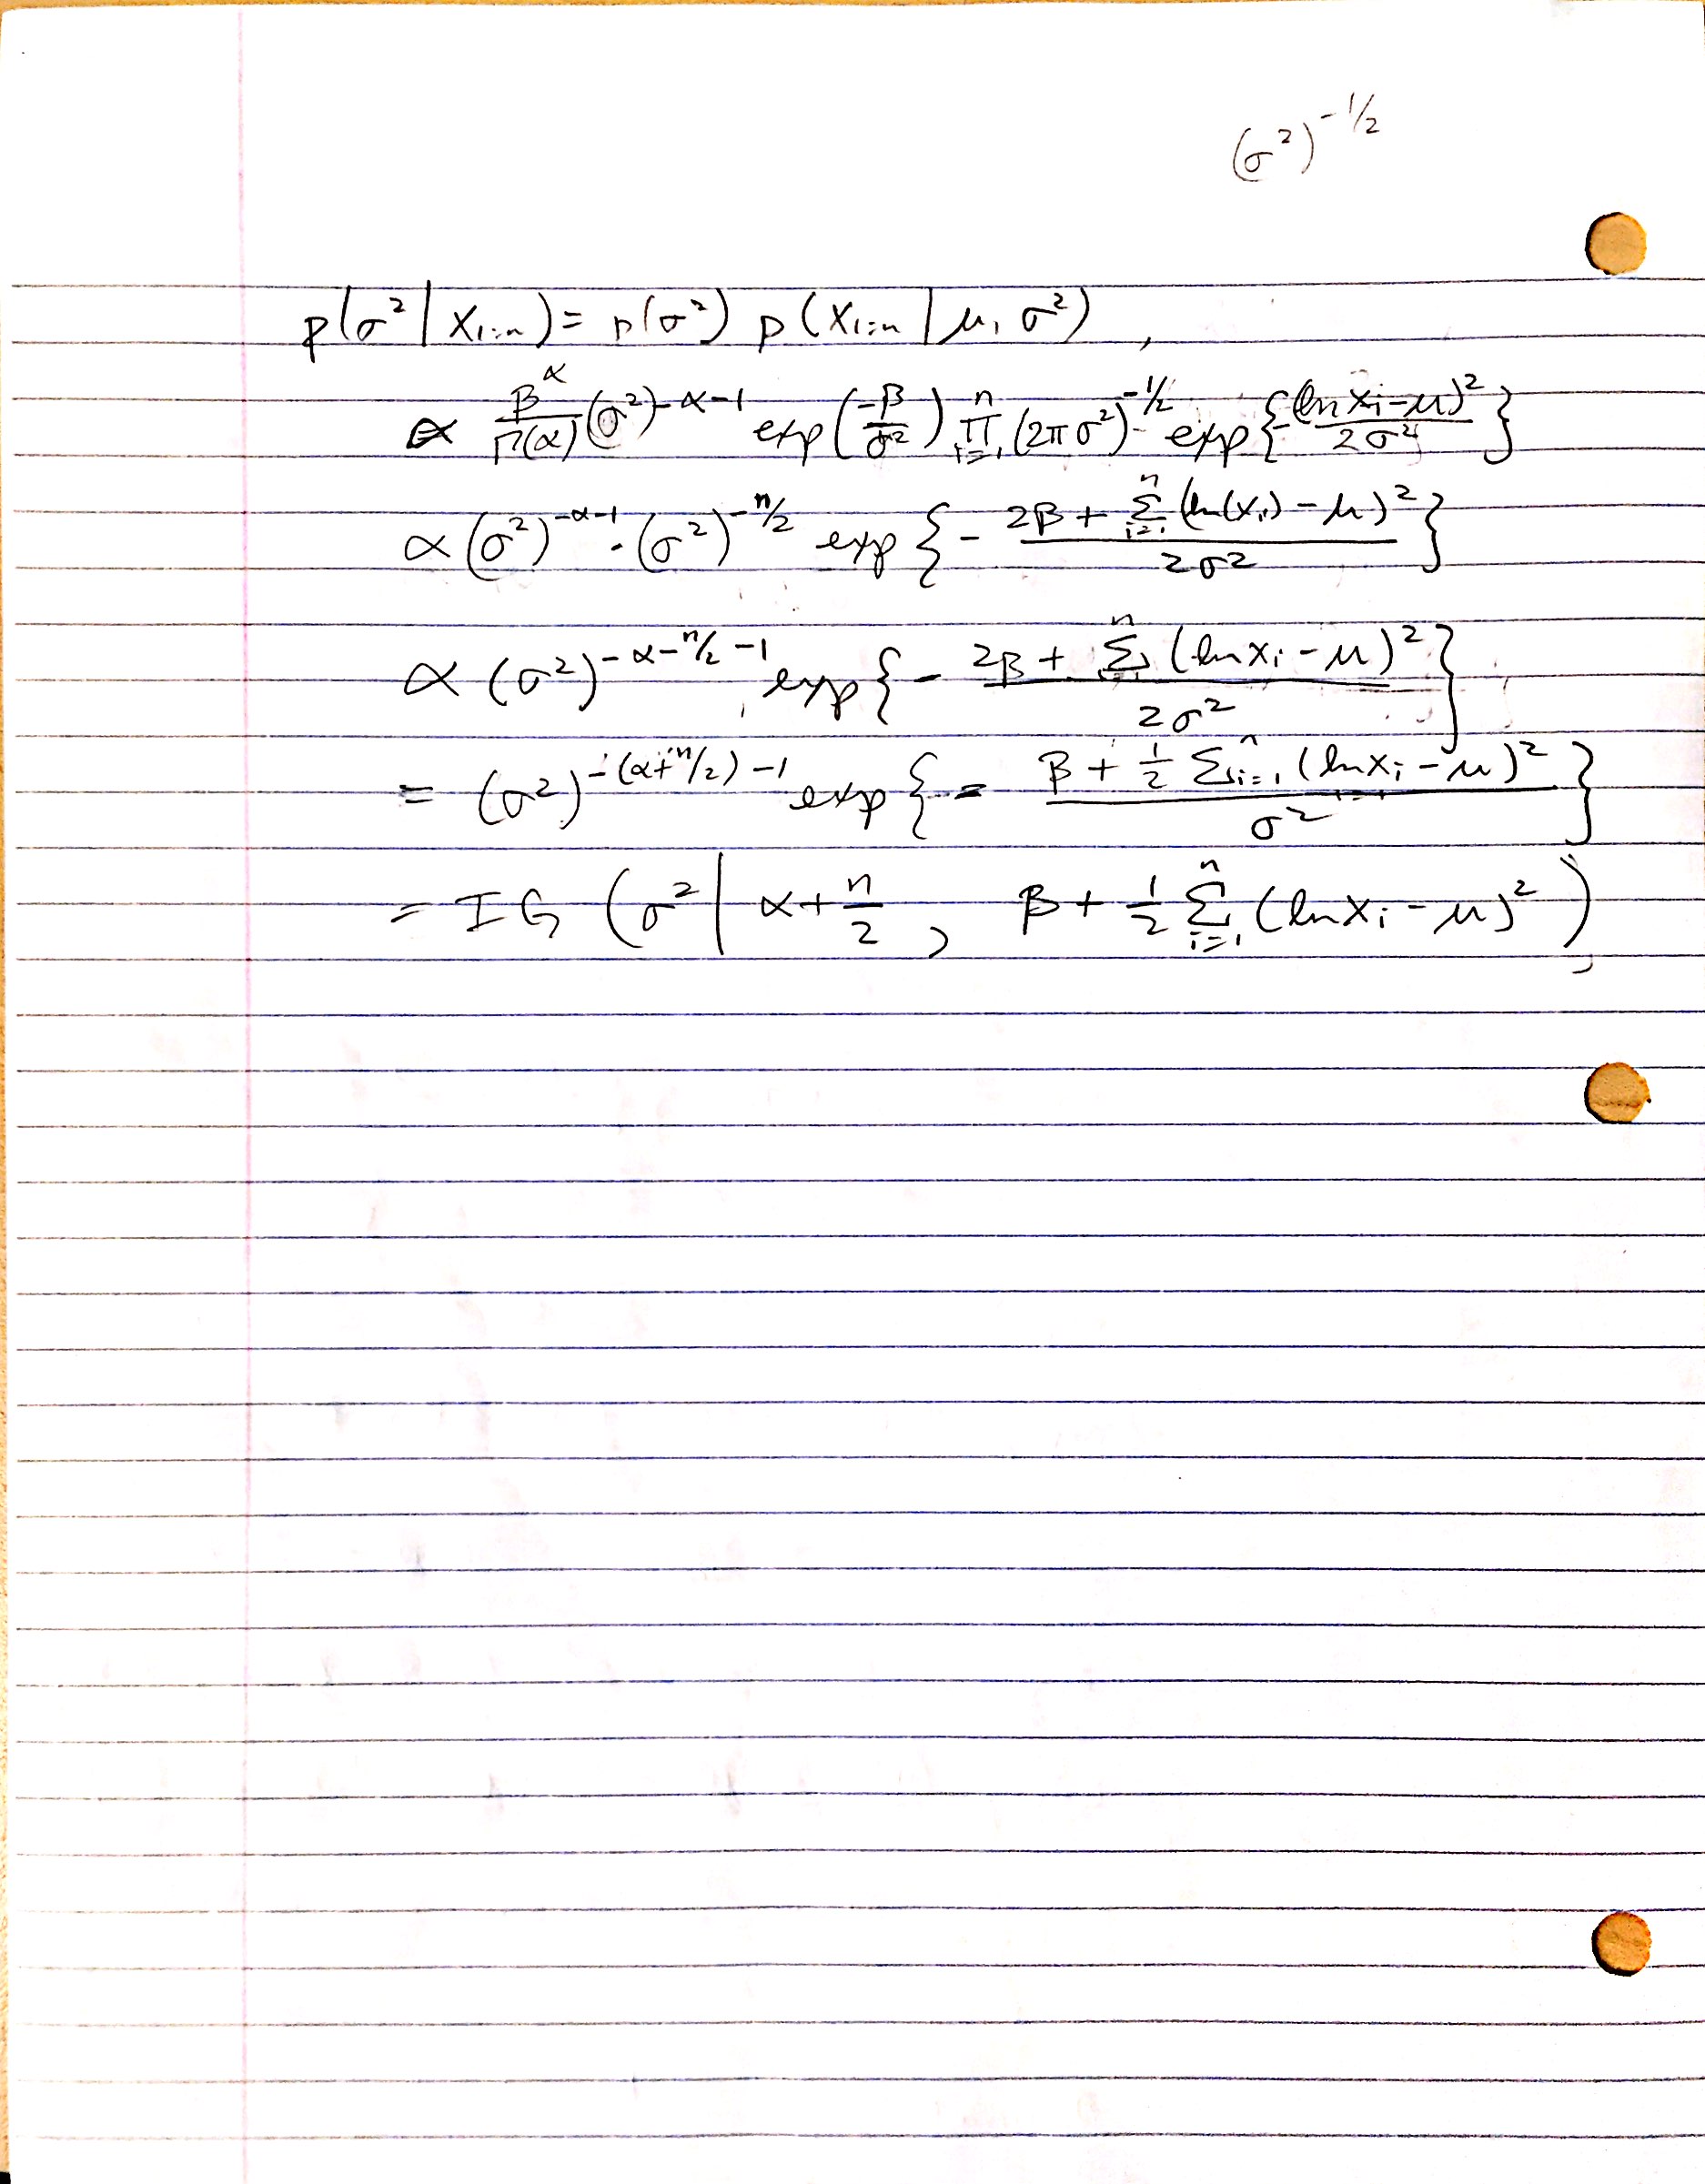 (σ²)^{-1/2}
p(σ² | x_{1:n}) = p(σ²) p(x_{1:n} | μ, σ²),
∝ \frac{β^α}{Γ(α)} (σ²)^{-α-1} exp(\frac{-β}{σ²}) ∏_{i=1}^{n} (2πσ²)^{-1/2} exp{-\frac{(ln x_i - μ)²}{2σ²}}
∝ (σ²)^{-α-1} · (σ²)^{-n/2} exp{- \frac{2β + ∑_{i=1}^{n} (ln(x_i) - μ)²}{2σ²}}
∝ (σ²)^{-α-n/2-1} exp{- \frac{2β + ∑_{i=1}^{n} (ln x_i - μ)²}{2σ²}}
= (σ²)^{-(α+n/2)-1} exp{- \frac{β + \frac{1}{2} ∑_{i=1}^{n} (ln x_i - μ)²}{σ²}}
= IG (σ² | α + \frac{n}{2}, β + \frac{1}{2} ∑_{i=1}^{n} (ln x_i - μ)²),